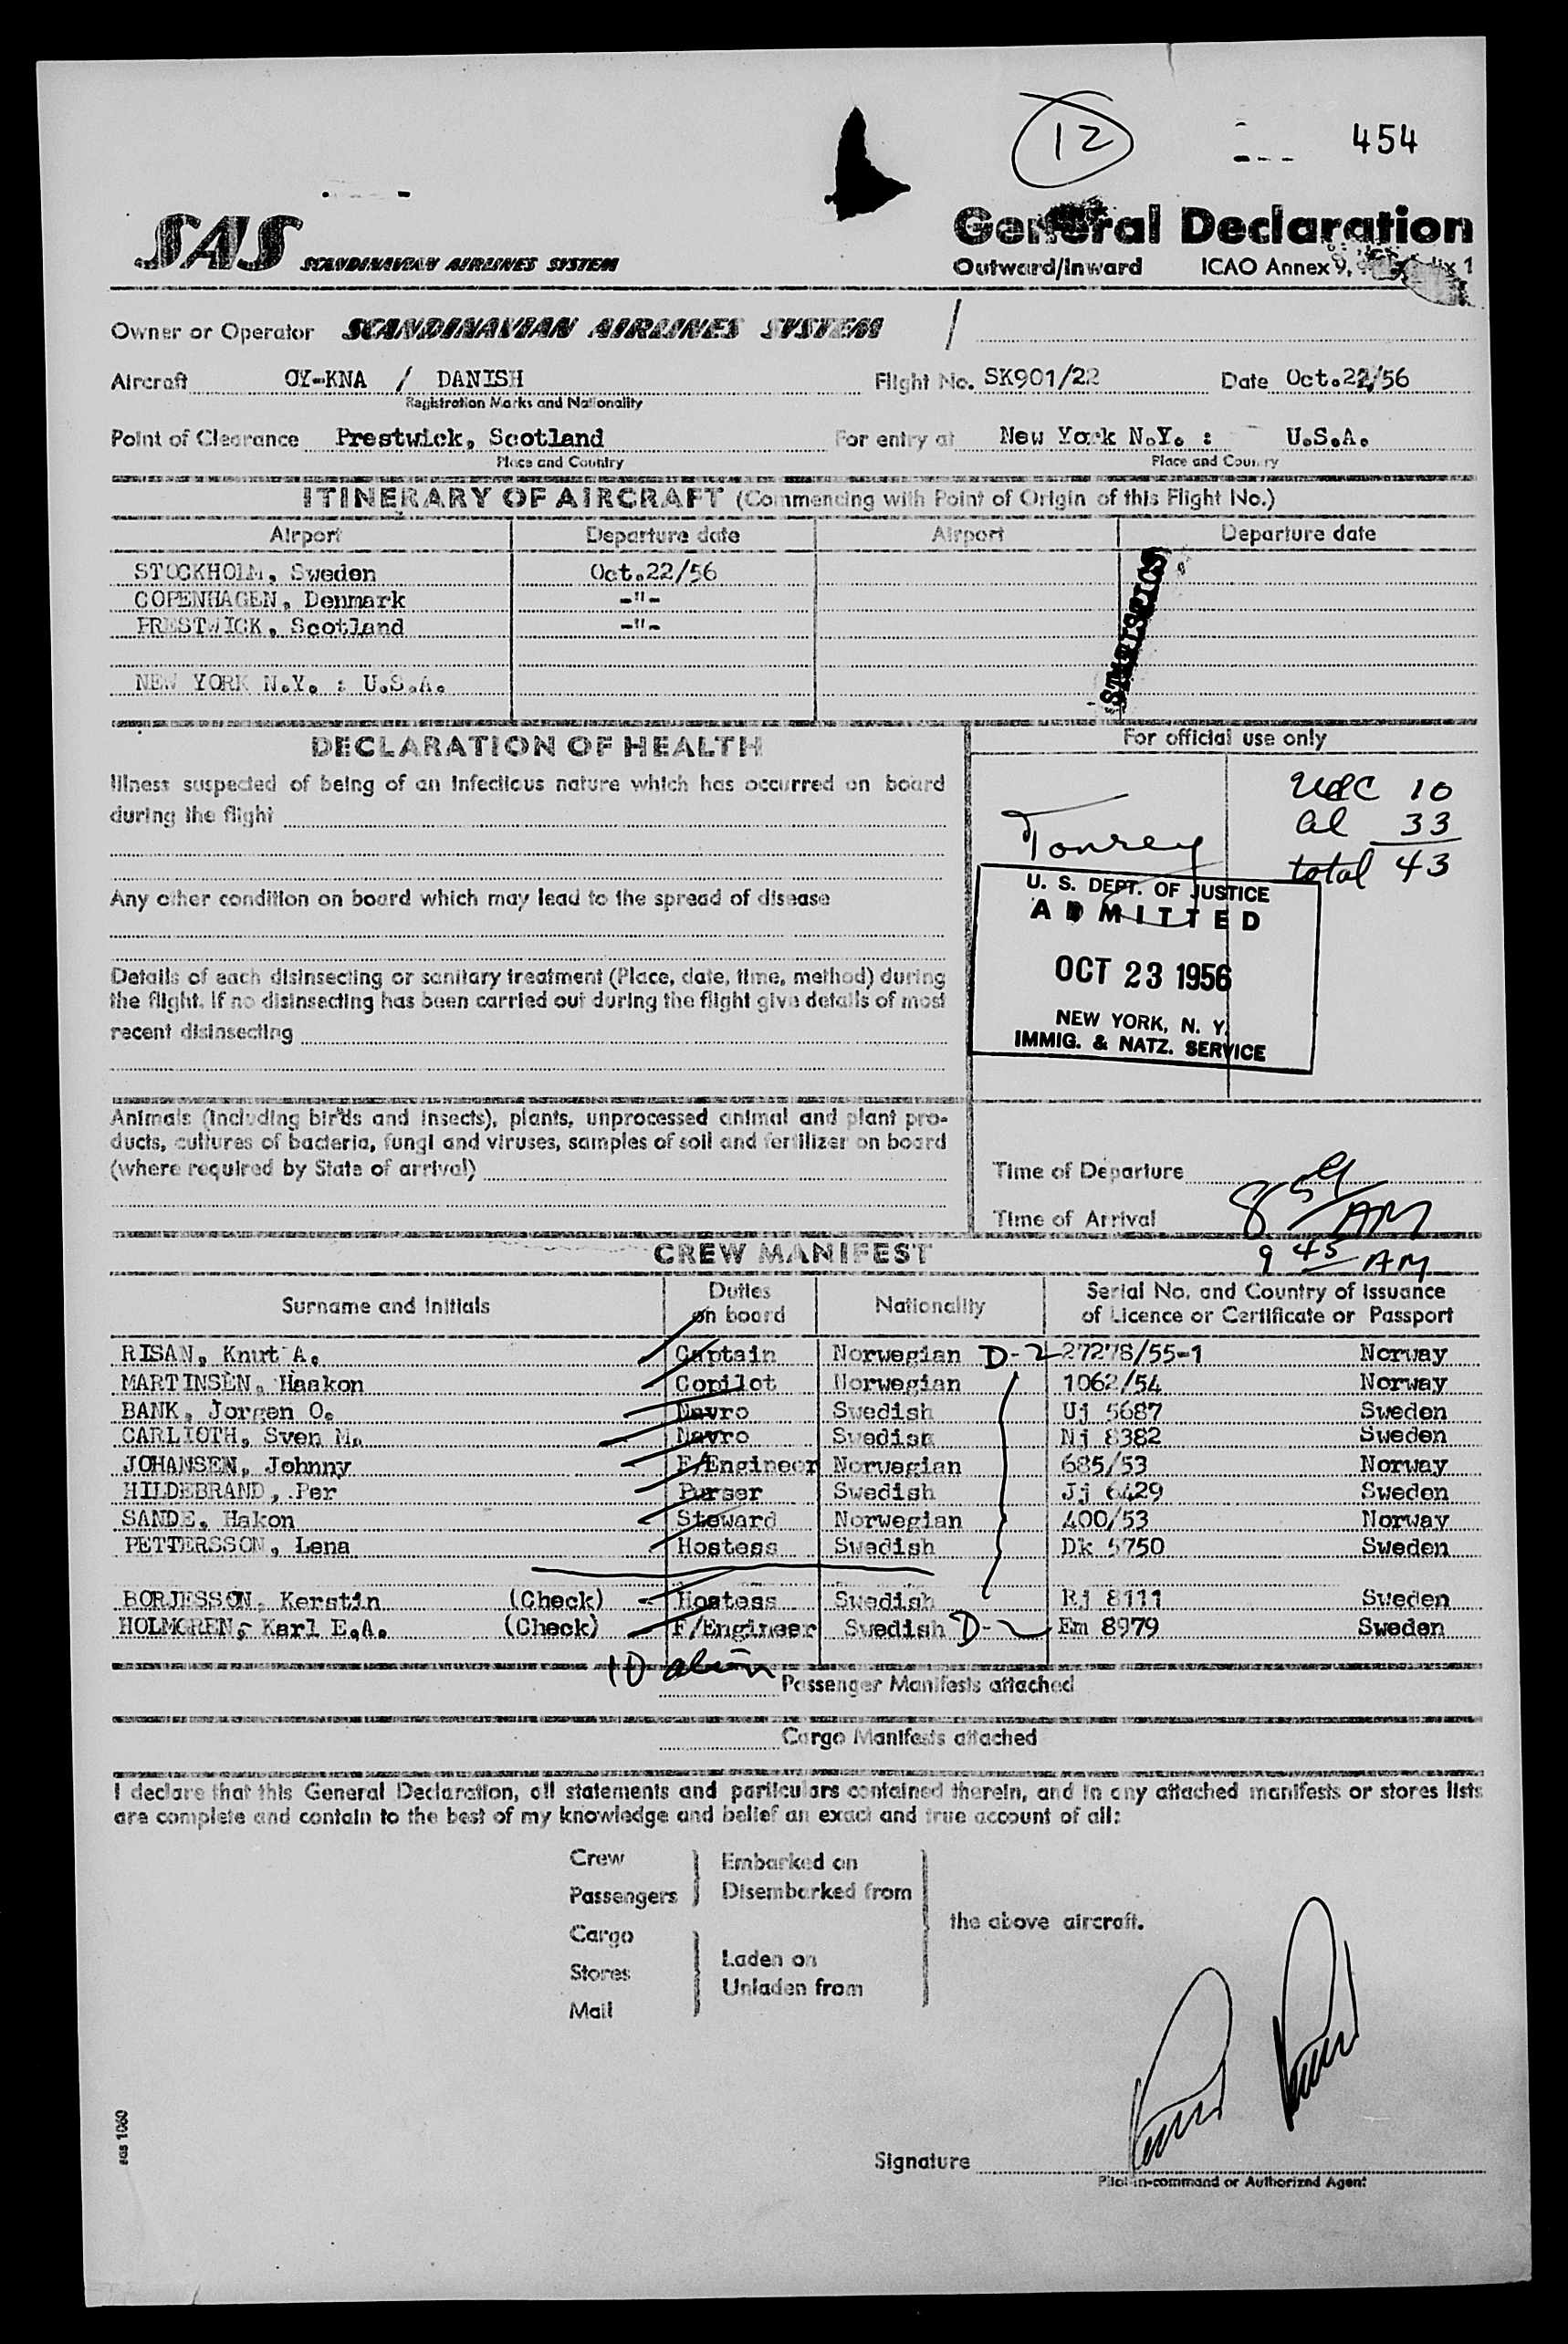 12
454
SAS SCANDINAVIAN AIRLINES SYSTEM
General Declaration
Outward/Inward ICAO Annex 9, 1
Owner or Operator SCANDINAVIAN AIRLINES SYSTEM /
Aircraft OY-KNA / DANISH Flight No. SK901/22 Date Oct.22/56
Registration Marks and Nationality
Point of Clearance Prestwick, Scotland For entry at New York N.Y. : U.S.A.
Place and Country Place and Country
ITINERARY OF AIRCRAFT (Commencing with Point of Origin of this Flight No.)
Airport Departure date Airport Departure date
STOCKHOLM, Sweden Oct.22/56
COPENHAGEN, Denmark -"-
PRESTWICK, Scotland -"-
NEW YORK N.Y. : U.S.A.
STATISTICS
DECLARATION OF HEALTH
Illness suspected of being of an infectious nature which has occurred on board
during the flight
Any other condition on board which may lead to the spread of disease
Details of each disinsecting or sanitary treatment (Place, date, time, method) during
the flight. If no disinsecting has been carried out during the flight give details of most
recent disinsecting
Animals (including birds and insects), plants, unprocessed animal and plant pro-
ducts, cultures of bacteria, fungi and viruses, samples of soil and fertilizer on board
(where required by State of arrival)
For official use only
USC 10
al 33
total 43
U. S. DEPT. OF JUSTICE
ADMITTED
OCT 23 1956
NEW YORK, N. Y.
IMMIG. & NATZ. SERVICE
Time of Departure
Time of Arrival 8 59 AM
9 45 AM
CREW MANIFEST
Surname and Initials Duties on board Nationality Serial No. and Country of Issuance of Licence or Certificate or Passport
RISAN, Knut A. Captain Norwegian D-2 27278/55-1 Norway
MARTINSEN, Haakon Copilot Norwegian 1062/54 Norway
BANK, Jorgen O. Navro Swedish Uj 5687 Sweden
CARLIOTH, Sven M. Navro Swedish Nj 8382 Sweden
JOHANSEN, Johnny F/Engineer Norwegian 685/53 Norway
HILDEBRAND, Per Purser Swedish Jj 6429 Sweden
SANDE, Hakon Steward Norwegian 400/53 Norway
PETTERSSON, Lena Hostess Swedish Dk 5750 Sweden
BORJESSON, Kerstin (Check) Hostess Swedish Rj 8111 Sweden
HOLMGREN, Karl E.A. (Check) F/Engineer Swedish D-2 Em 8979 Sweden
10 alien
Passenger Manifests attached
Cargo Manifests attached
I declare that this General Declaration, all statements and particulars contained therein, and in any attached manifests or stores lists
are complete and contain to the best of my knowledge and belief an exact and true account of all:
Crew Embarked on
Passengers Disembarked from
the above aircraft.
Cargo
Laden on
Stores
Unladen from
Mail
sas 1060
Signature
Pilot-in-command or Authorized Agent